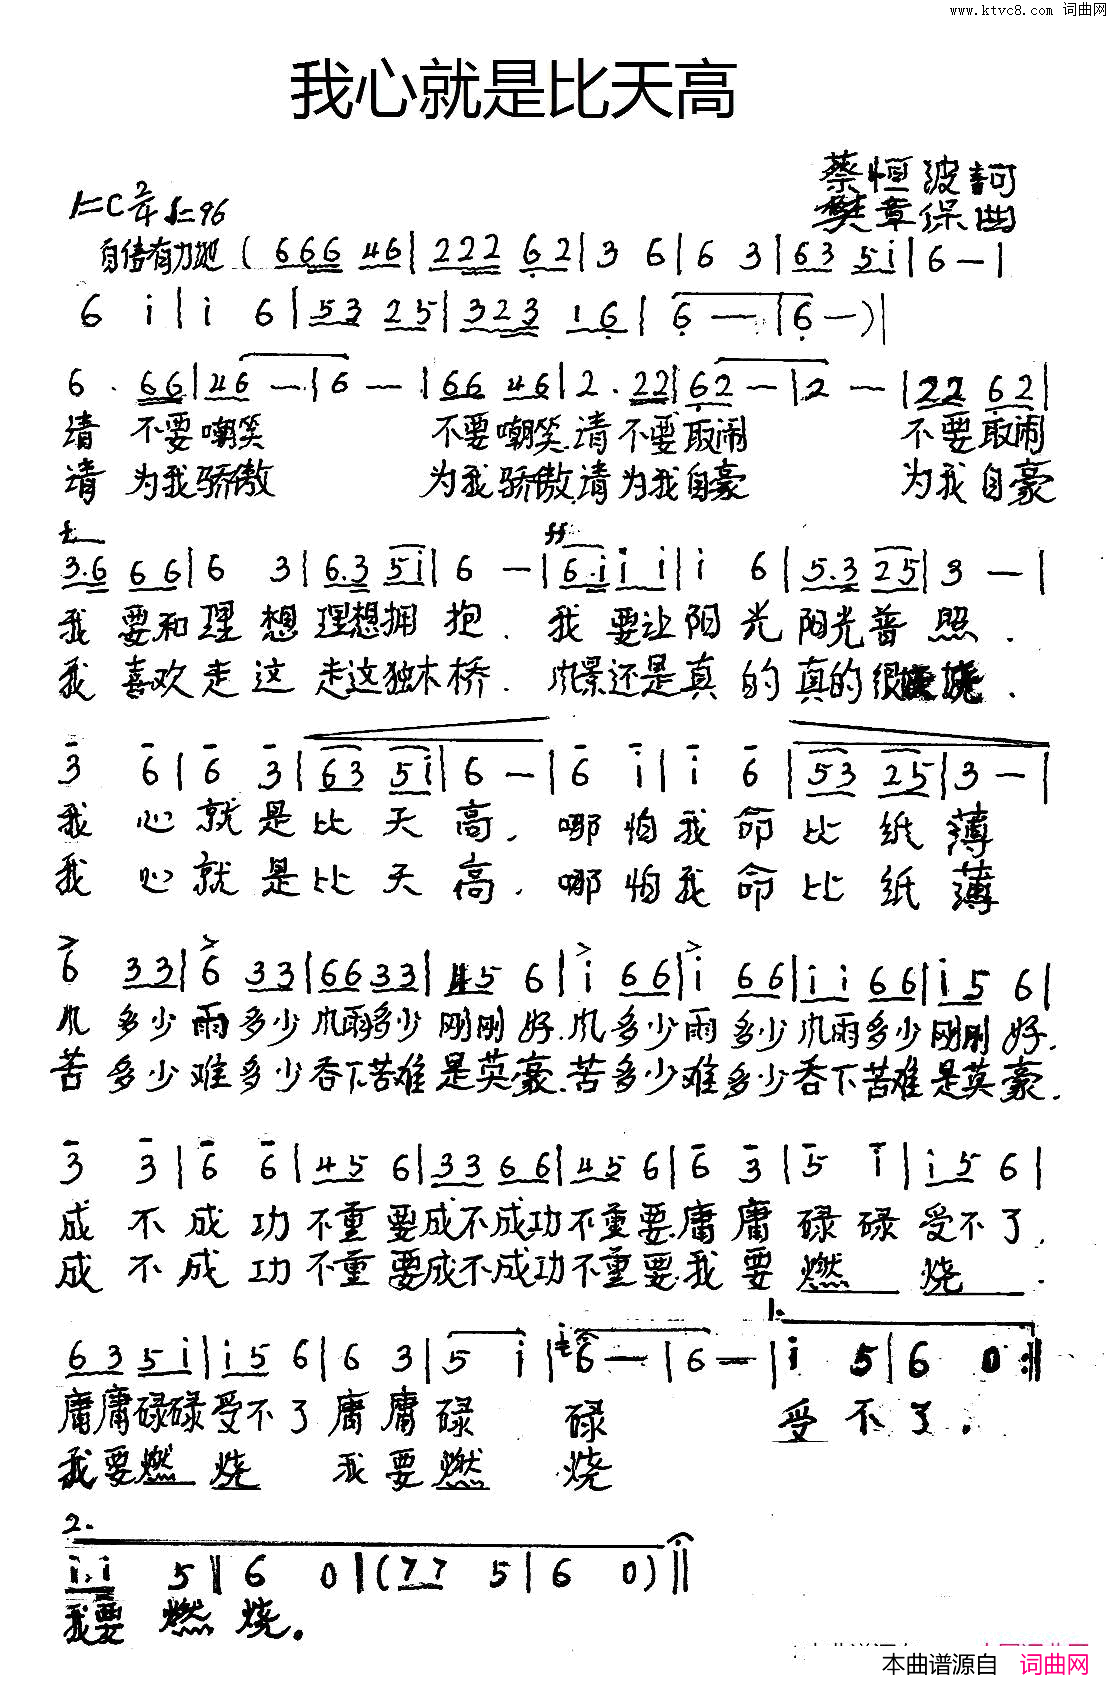 www.ktvc8.com 词曲网
我心就是比天高
蔡恒波詞
1=C 2/4 ♩=96
樊章保曲
自信有力地 ( 666 46 | 222 62 | 3 6 | 6 3 | 63 5i | 6 — |
6 i | i 6 | 53 25 | 323 16 | 6 — | 6 — ) |
6 . 66 | 46 — | 6 — | 66 46 | 2 . 22 | 62 — | 2 — | 22 62 |
请 不要嘲笑 不要嘲笑.请不要取闹 不要取闹
请 为我骄傲 为我骄傲.请为我自豪 为我自豪
f ff
3.6 66 | 6 3 | 6.3 5i | 6 — | 6.i i i | i 6 | 5.3 25 | 3 — |
我 要和理想理想拥抱. 我要让阳光阳光普照.
我 喜欢走这走这独木桥. 风景还是真的真的很
3 6 | 6 3 | 63 5i | 6 — | 6 i | i 6 | 53 25 | 3 — |
我 心就是比天高, 哪怕我命比纸薄
我 心就是比天高, 哪怕我命比纸薄
6 33 | 6 33 | 66 33 | 45 6 | i 66 | i 66 | i i 66 | i 5 6 |
风多少雨多少风雨多少刚刚好.风多少雨多少风雨多少刚刚好.
苦多少难多少吞下苦难是英豪.苦多少难多少吞下苦难是英豪.
3 3 | 6 6 | 45 6 | 33 66 | 45 6 | 6 3 | 5 i | i 5 6 |
成不成功不重要成不成功不重要.庸庸碌碌受不了.
成不成功不重要成不成功不重要.我要燃烧.
1.
63 5i | i 5 6 | 6 3 | 5 i | 6 — | 6 — | i 5 | 6 0 :‖
庸庸碌碌受不了庸庸碌碌 受不了.
我要燃烧 我要燃烧
2.
i.i 5 ‖ 6 0 ‖ ( 77 5 | 6 0 ) ‖
我要燃烧.
本曲谱源自 词曲网